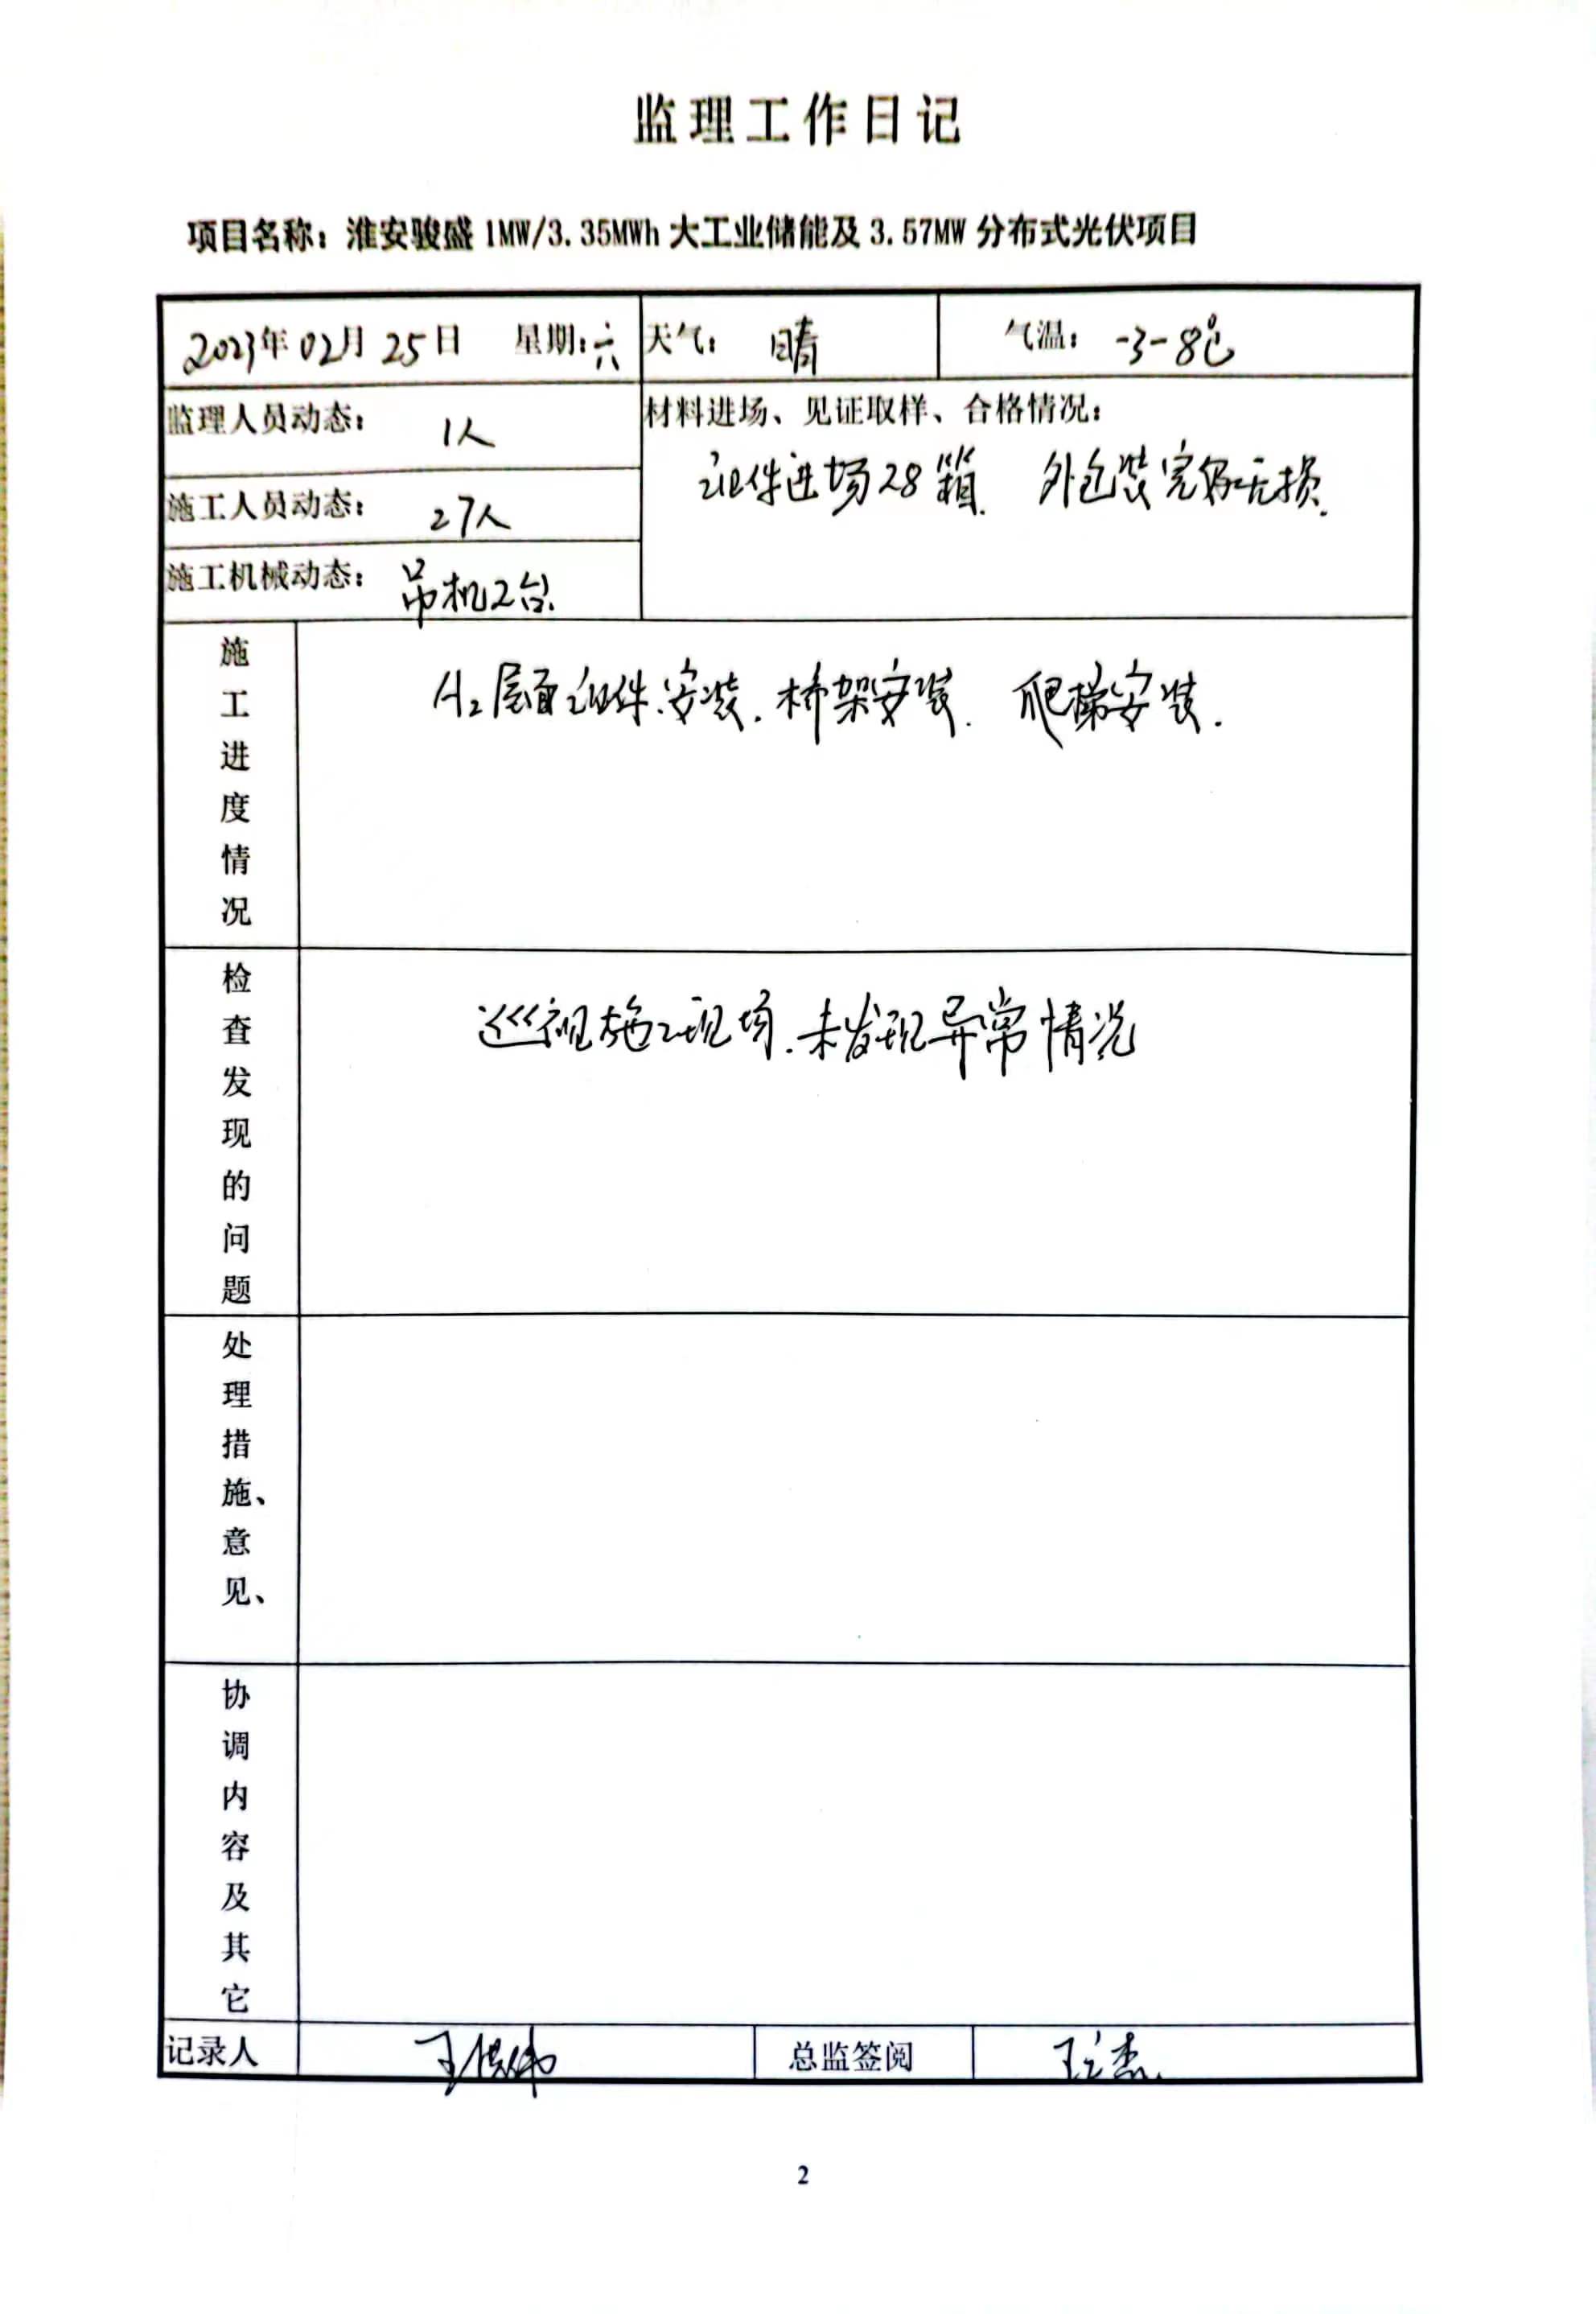 监理工作日记
项目名称：淮安骏盛 1MW/3.35MWh 大工业储能及 3.57MW 分布式光伏项目
2023年02月25日 星期:六 天气： 晴 气温： -3-8℃
监理人员动态： 1人
材料进场、见证取样、合格情况：
组件进场28箱. 外包装完好无损.
施工人员动态： 27人
施工机械动态： 吊机2台
施工进度情况
层面组件安装. 桥架安装. 爬梯安装.
检查发现的问题
巡视施工现场. 未发现异常情况
处理措施、意见、
协调内容及其它
记录人 总监签阅
2